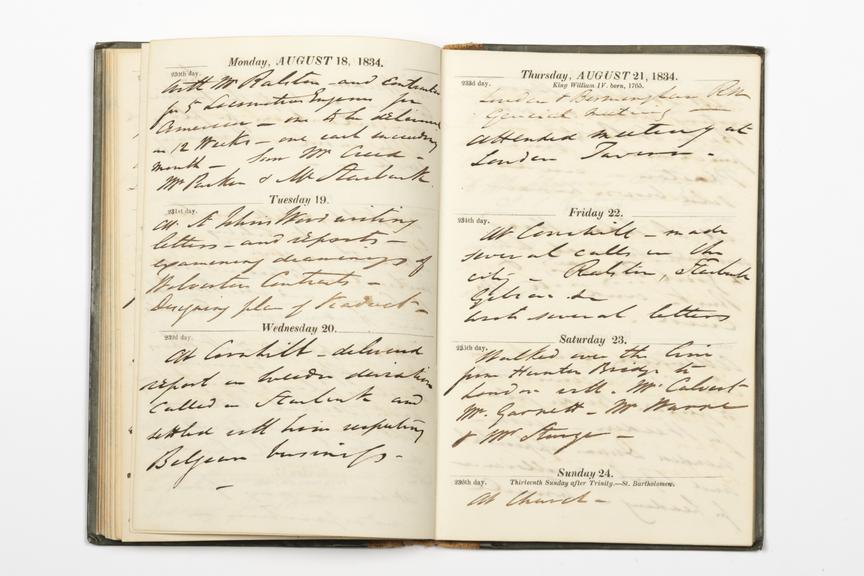 Monday, AUGUST 18, 1834.
230th day.
with Mr Ralston - and contract
for 5 Locomotive Engines for
America - one to be delivered
in 12 Weeks - one each succeeding
month - Mr Creed -
Mr Parker & Mr Starbuck
Tuesday 19.
231st day.
At St Johns Wood writing
letters - and reports -
examining drawings of
Wolverton Contracts -
Designing plan of Viaduct -
Wednesday 20.
232d day.
At Cornhill - delivered
report on deviation
Called on Starbuck and
settled with him respecting
Belgian business -
Thursday, AUGUST 21, 1834.
233d day.
King William IV. born, 1765.
London & Birmingham RW
General meeting -
attended meeting at
London Tavern -
Friday 22.
234th day.
At Cornhill - made
several calls in the
city - Ralston, Starbuck
Gibson &c
wrote several letters
Saturday 23.
235th day.
Walked over the line
from Hunton Bridge to
London with Mr Calvert
Mr Garnett - Mr Warner
& Mr Sturge -
Sunday 24.
236th day.
Thirteenth Sunday after Trinity.—St. Bartholomew.
At Church -